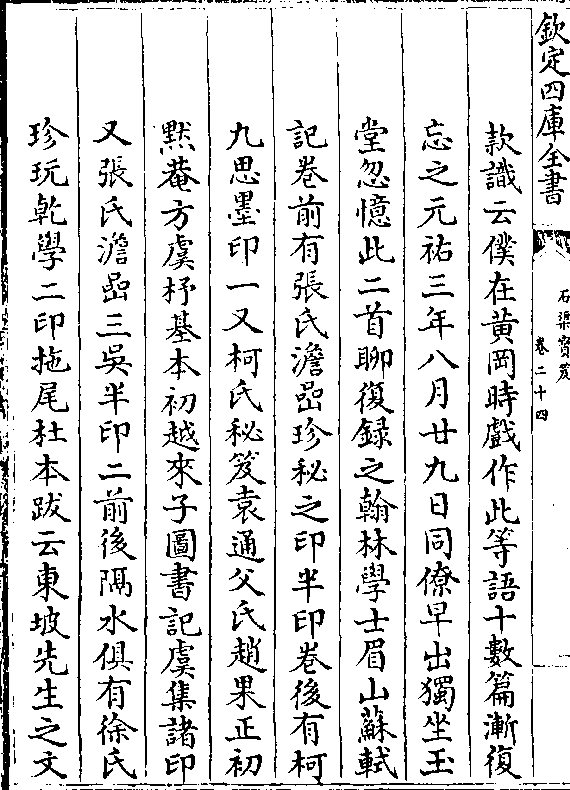 欽定四庫全書
石渠寳笈
卷二十四
款識云僕在黄岡時戲作此等語十數篇漸復
忘之元祐三年八月廿九日同僚早出獨坐玉
堂忽憶此二首聊復録之翰林學士眉山蘇軾
記卷前有張氏澹嵒珍秘之印半印卷後有柯
九思墨印一又柯氏秘笈袁通父氏趙果正初
黙菴方虞杼基本初越來子圖書記虞集諸印
又張氏澹嵒三吳半印二前後隔水俱有徐氏
珍玩乾學二印拖尾杜本跋云東坡先生之文